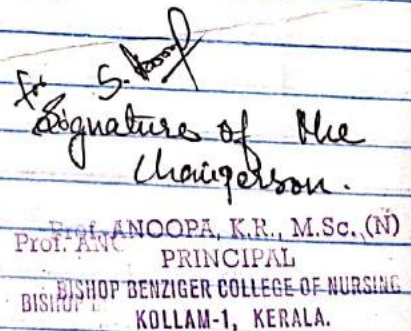 for S.
Signature of the
Chairperson.
Prof. ANOOPA, K.R., M.Sc. (N)
PRINCIPAL
BISHOP BENZIGER COLLEGE OF NURSING
KOLLAM-1, KERALA.